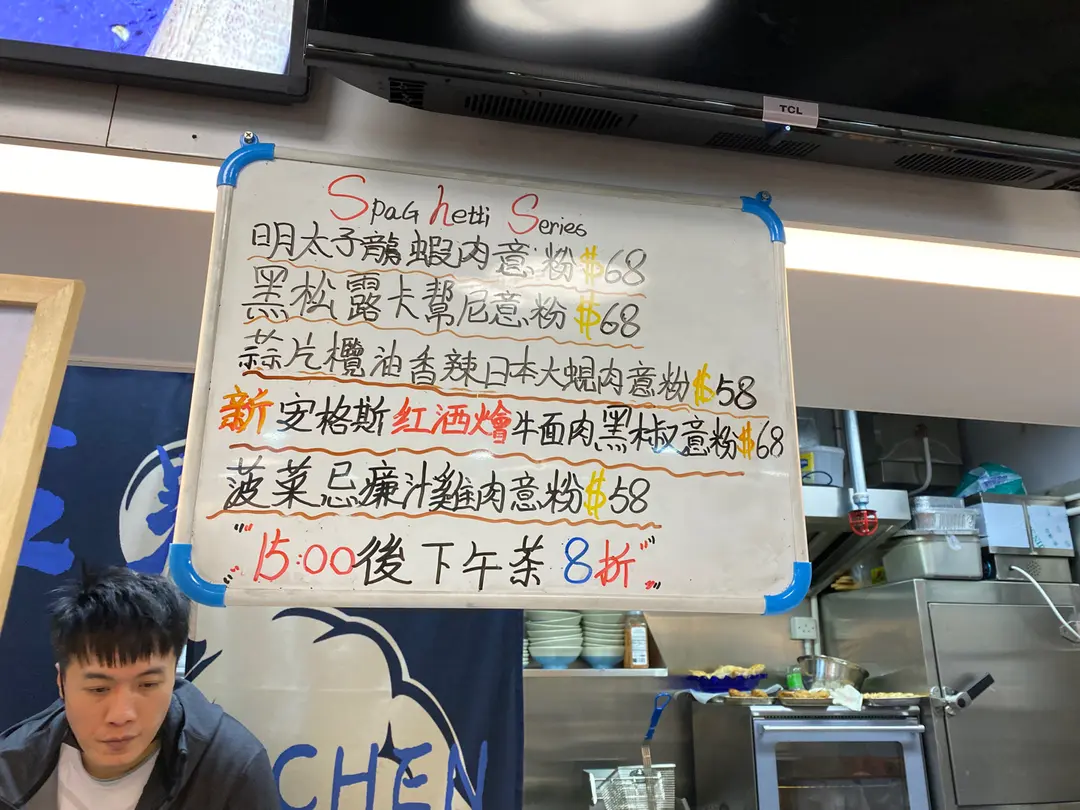 TCL
Spaghetti Series
明太子龍蝦肉意粉$68
黑松露卡幫尼意粉$68
蒜片欖油香辣日本大蜆肉意粉$58
新 安格斯红酒燴牛面肉黑椒意粉$68
菠菜忌廉汁雞肉意粉$58
"15:00後下午茶8折"
CHEN